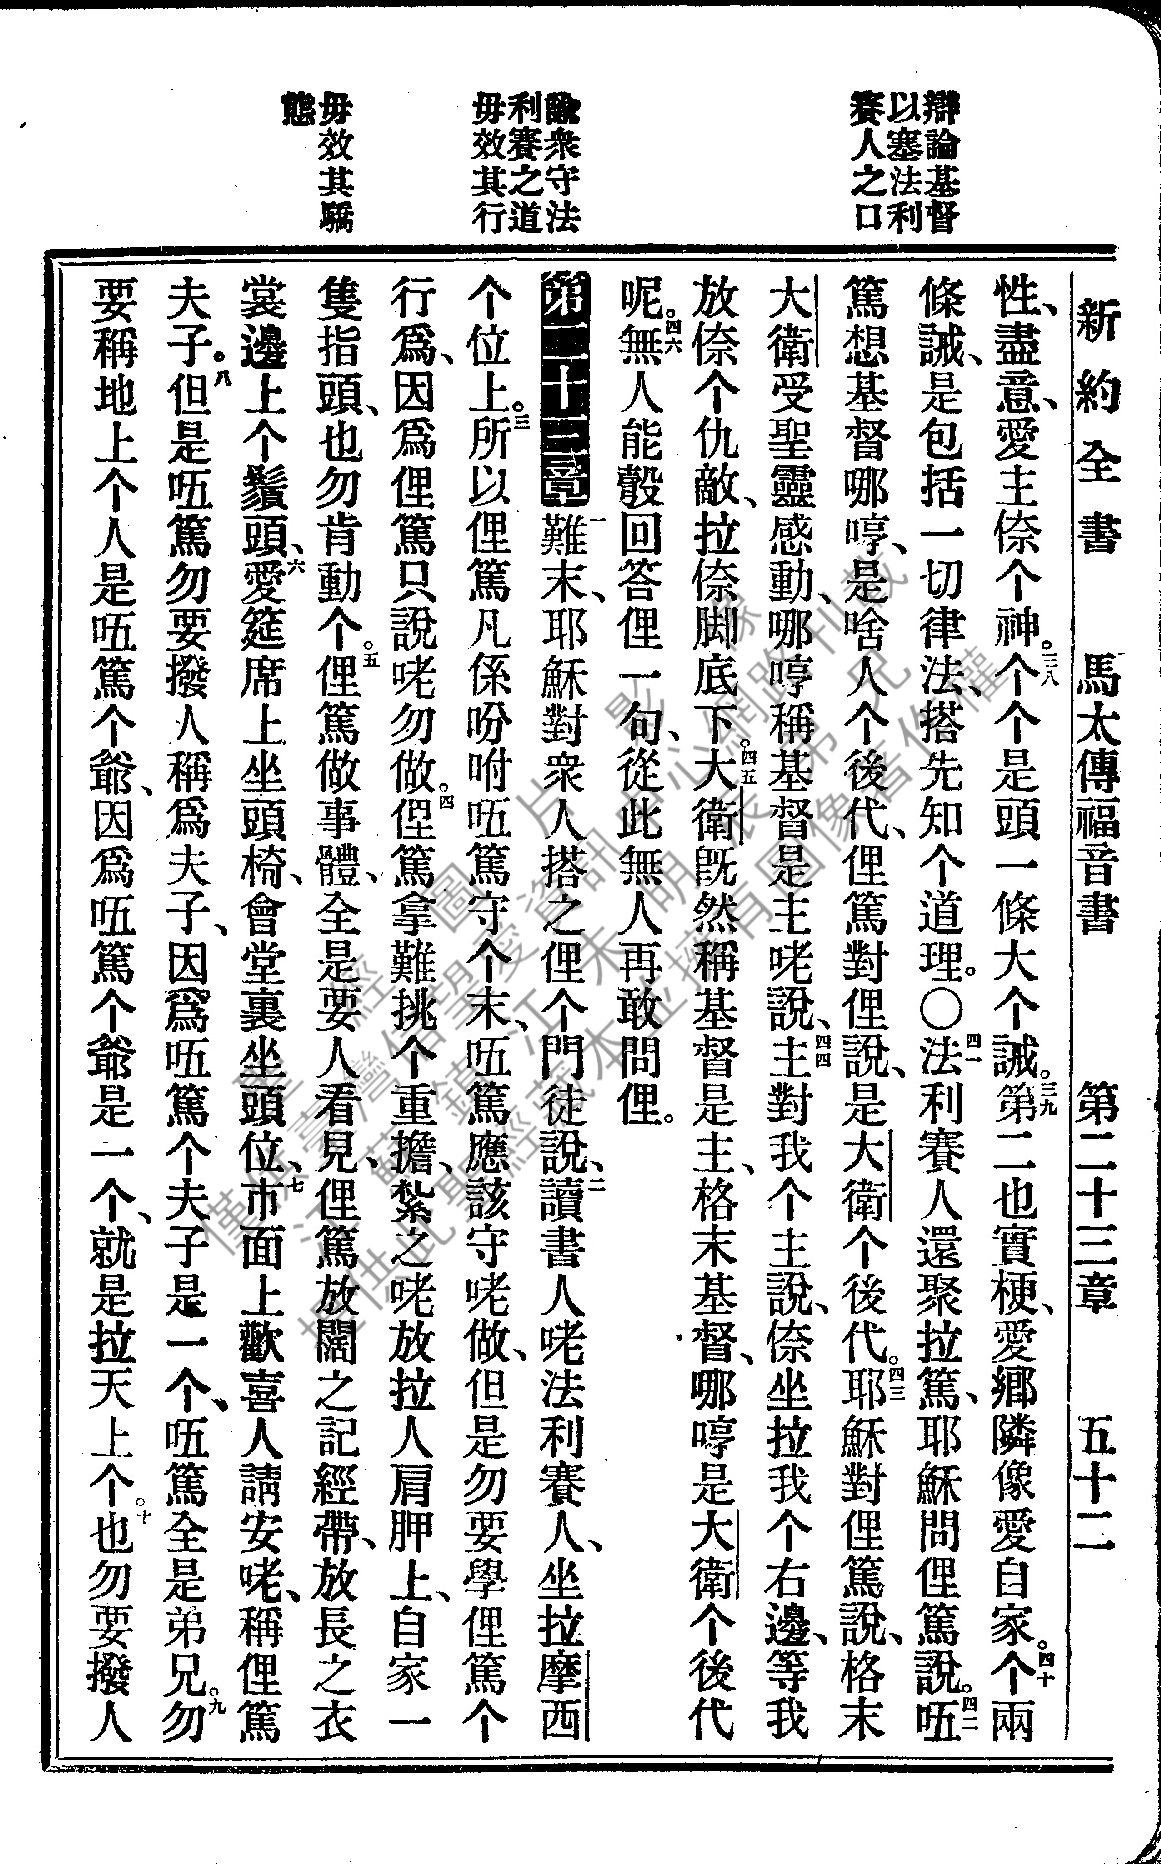 新約全書 馬太傳福音書 第二十三章 五十二
辯論基督
以塞法利
賽人之口
衆守法
利賽之道
毋效其行
毋效其驕
態
性、盡意、愛主倷个神。三八个个是頭一條大个誡。三九第二也實梗、愛鄉隣像愛自家。四十个兩
條誡、是包括一切律法、搭先知个道理。〇四一法利賽人還聚拉篤、耶穌問俚篤說。四二㕶
篤想基督哪哼、是啥人个後代、俚篤對俚說、是大衛个後代。四三耶穌對俚篤說、格末
大衛受聖靈感動、哪哼稱基督是主咾說、四四主對我个主說、倷坐拉我个右邊、等我
放倷个仇敵、拉倷脚底下。四五大衛旣然稱基督是主、格末基督、哪哼是大衛个後代
呢。四六無人能彀回答俚一句、從此無人再敢問俚。
第二十三章 一難末、耶穌對衆人搭之俚个門徒說、二讀書人咾法利賽人、坐拉摩西
个位上。三所以俚篤凡係吩咐㕶篤守个末、㕶篤應該守咾做、但是勿要學俚篤个
行爲、因爲俚篤只說咾勿做。四俚篤拿難挑个重擔、紮之咾放拉人肩胛上、自家一
隻指頭、也勿肯動个。五俚篤做事體、全是要人看見、俚篤放闊之記經帶、放長之衣
裳邊上个鬚頭、六愛筵席上坐頭椅、會堂裏坐頭位、七市面上歡喜人請安咾、稱俚篤
夫子。八但是㕶篤勿要撥人稱爲夫子、因爲㕶篤个夫子是一个、㕶篤全是弟兄。九勿
要稱地上个人是㕶篤个爺、因爲㕶篤个爺是一个、就是拉天上个。十也勿要撥人